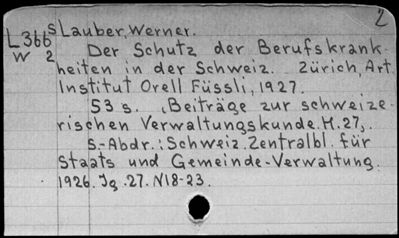 2
L 366 s Lauber, Werner.
W 2 Der Schutz der Berufskrank-
heiten in der Schweiz. Zürich, Art.
Institut Orell Füssli, 1927.
53 s. (Beiträge zur schweize-
rischen Verwaltungskunde. H. 27).
S.-Abdr.: Schweiz. Zentralbl. für
Staats und Gemeinde-Verwaltung.
1926. Jg. 27. N18-23.